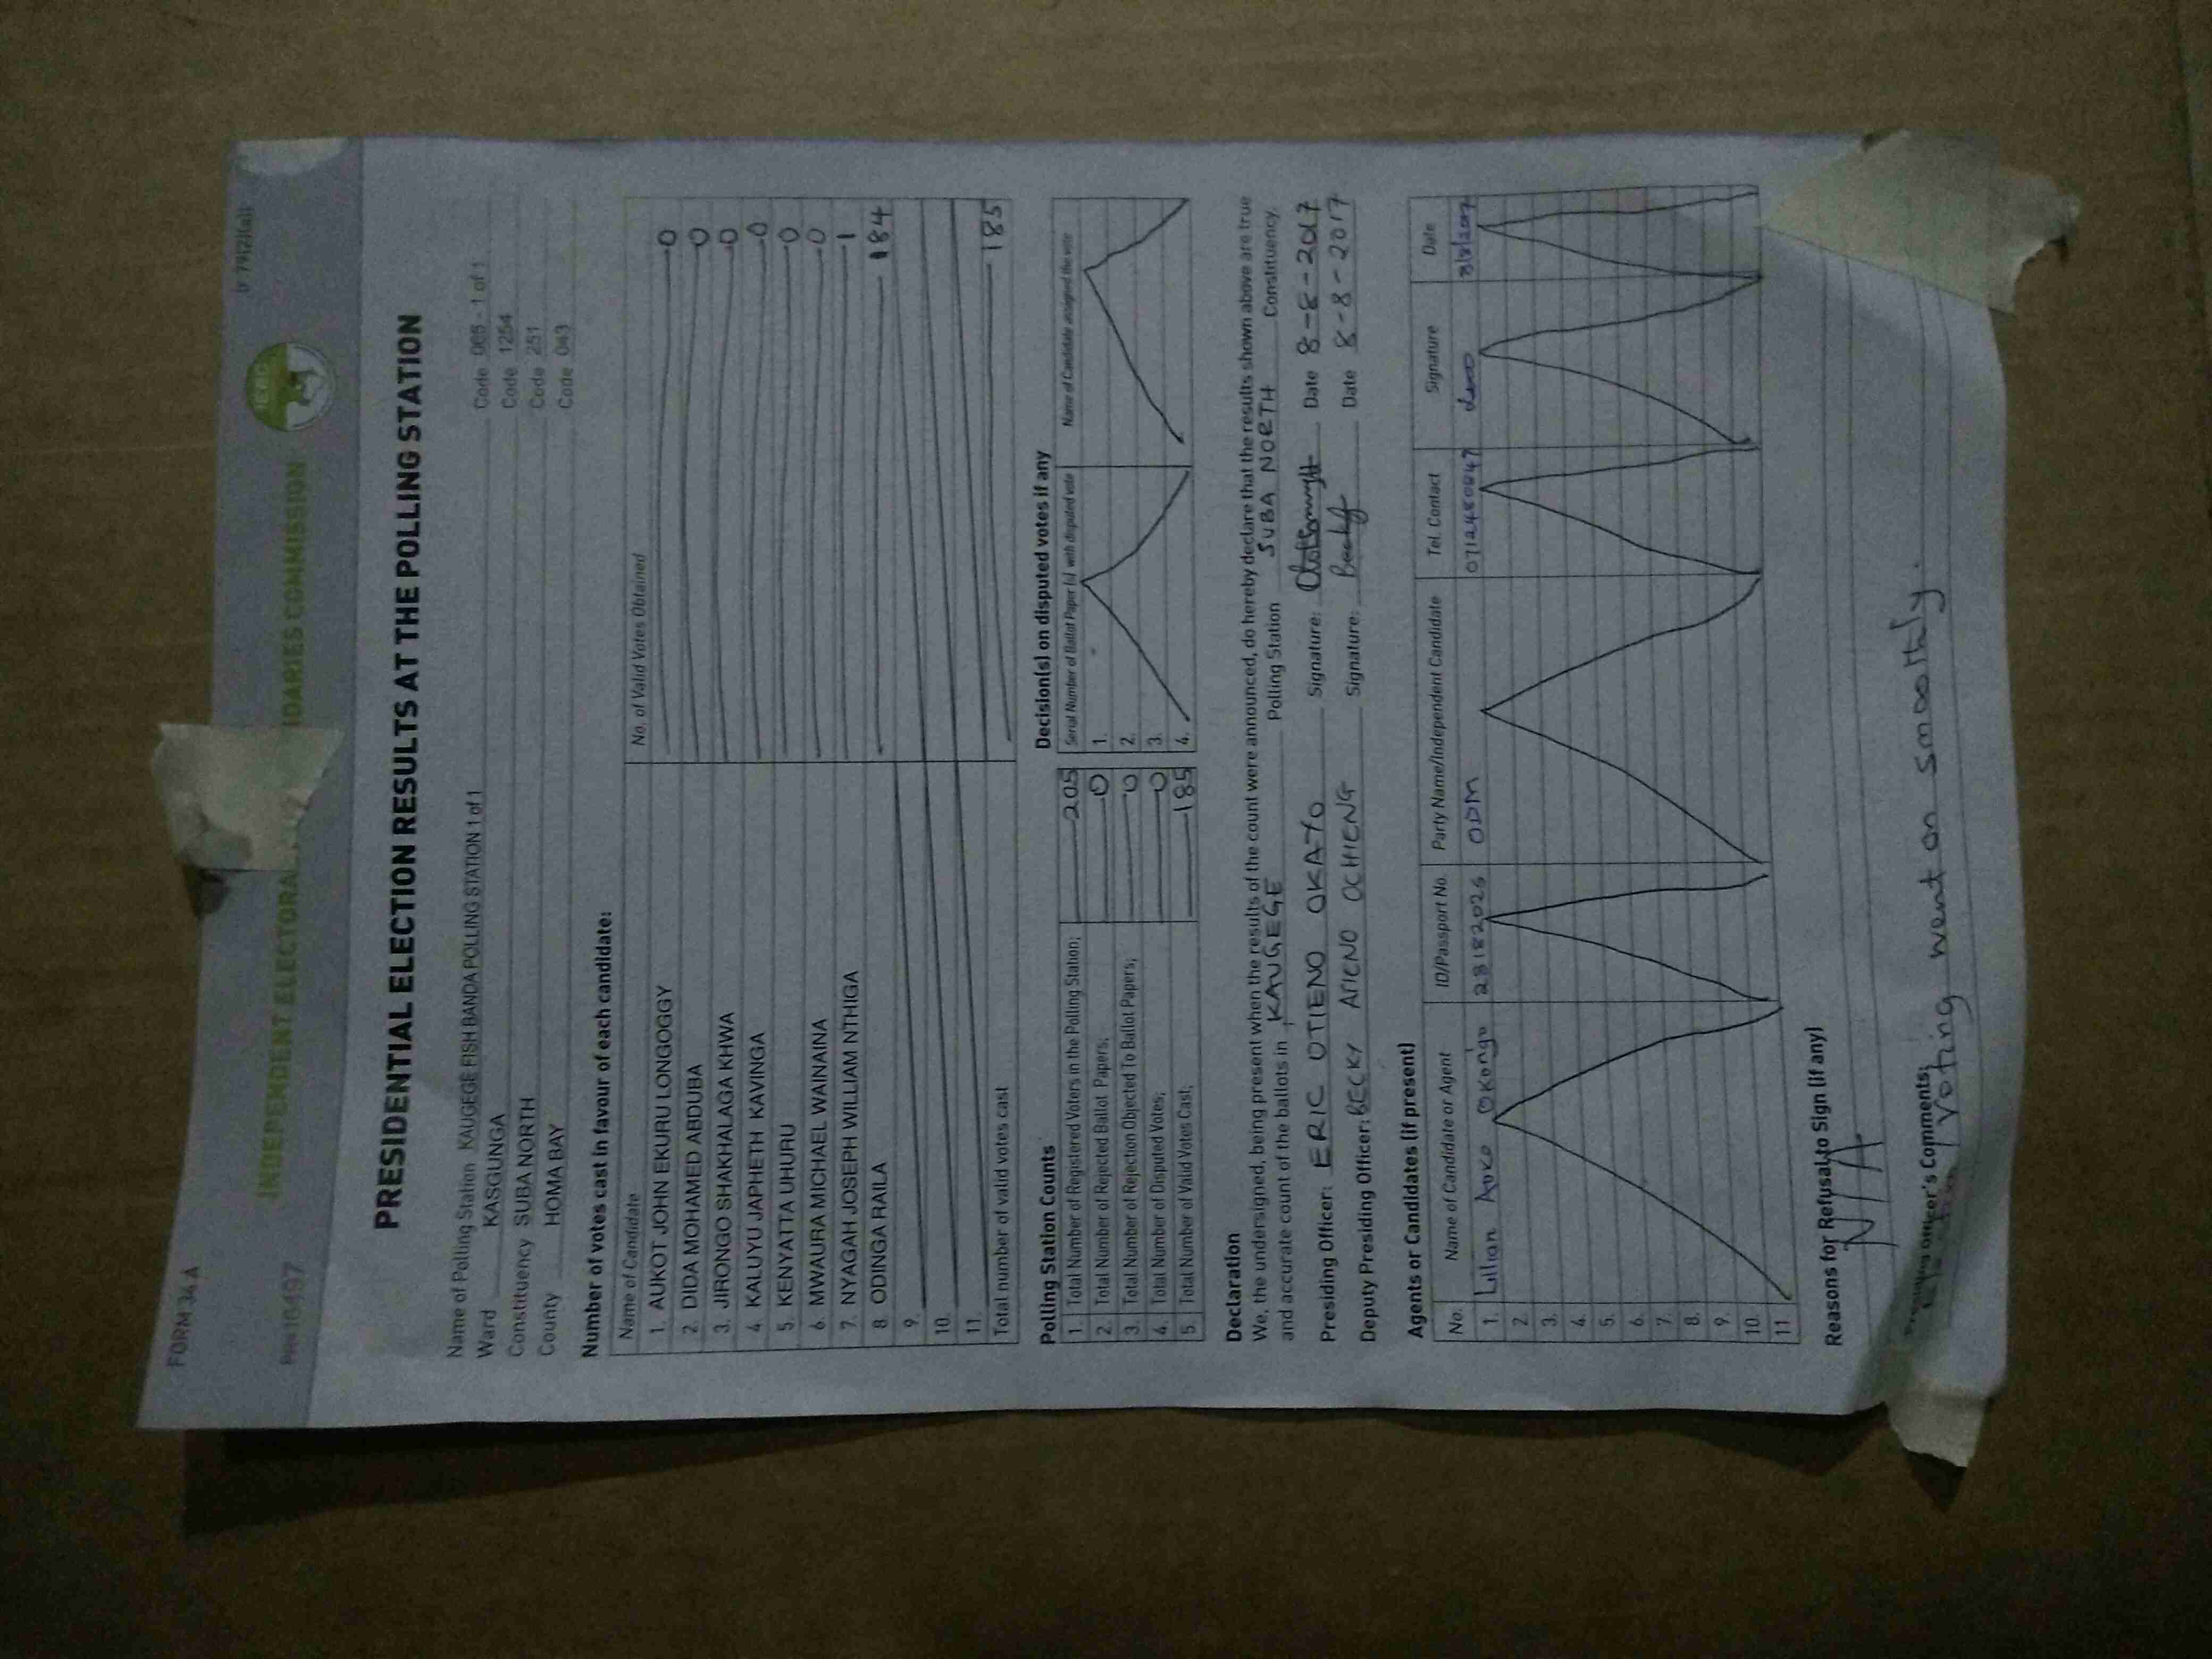 FORM 34 A
(r 79(2)(a))
INDEPENDENT ELECTORAL IDARIES COMMISSION
IEBC
PRESIDENTIAL ELECTION RESULTS AT THE POLLING STATION
Name of Polling Station KAUGEGE FISH BANDA POLLING STATION 1 of 1 Code 065 - 1 of 1
Ward KASGUNGA Code 1254
Constituency SUBA NORTH Code 251
County HOMA BAY Code 043
Number of votes cast in favour of each candidate:
Name of Candidate No. of Valid Votes Obtained
1. AUKOT JOHN EKURU LONGOGGY 0
2. DIDA MOHAMED ABDUBA 0
3. JIRONGO SHAKHALAGA KHWA 0
4. KALUYU JAPHETH KAVINGA 0
5. KENYATTA UHURU 0
6. MWAURA MICHAEL WAINAINA 0
7. NYAGAH JOSEPH WILLIAM NTHIGA 1
8. ODINGA RAILA 184
9.
10.
11.
Total number of valid votes cast 185
Polling Station Counts
1. Total Number of Registered Voters in the Polling Station; 205
2. Total Number of Rejected Ballot Papers; 0
3. Total Number of Rejection Objected To Ballot Papers; 0
4. Total Number of Disputed Votes; 0
5. Total Number of Valid Votes Cast; 185
Decision(s) on disputed votes if any
Serial Number of Ballot Paper (s) with disputed vote Name of Candidate assigned the vote
1.
2.
3.
4.
Declaration
We, the undersigned, being present when the results of the count were announced, do hereby declare that the results shown above are true
and accurate count of the ballots in KAUGEGE Polling Station SUBA NORTH Constituency.
Presiding Officer: ERIC OTIENO OKATO Signature: Date 8-8-2017
Deputy Presiding Officer: BECKY ATIENO OCHIENG Signature: Becky Date 8-8-2017
Agents or Candidates (if present)
No. Name of Candidate or Agent ID/Passport No. Party Name/Independent Candidate Tel. Contact Signature Date
1. Lilian Aoko Okongo ODM 8/8/2017
2.
3.
4.
5.
6.
7.
8.
9.
10.
11.
Reasons for Refusal to Sign (if any)
N/A
Officer's Comments:
Voting went on smoothly.